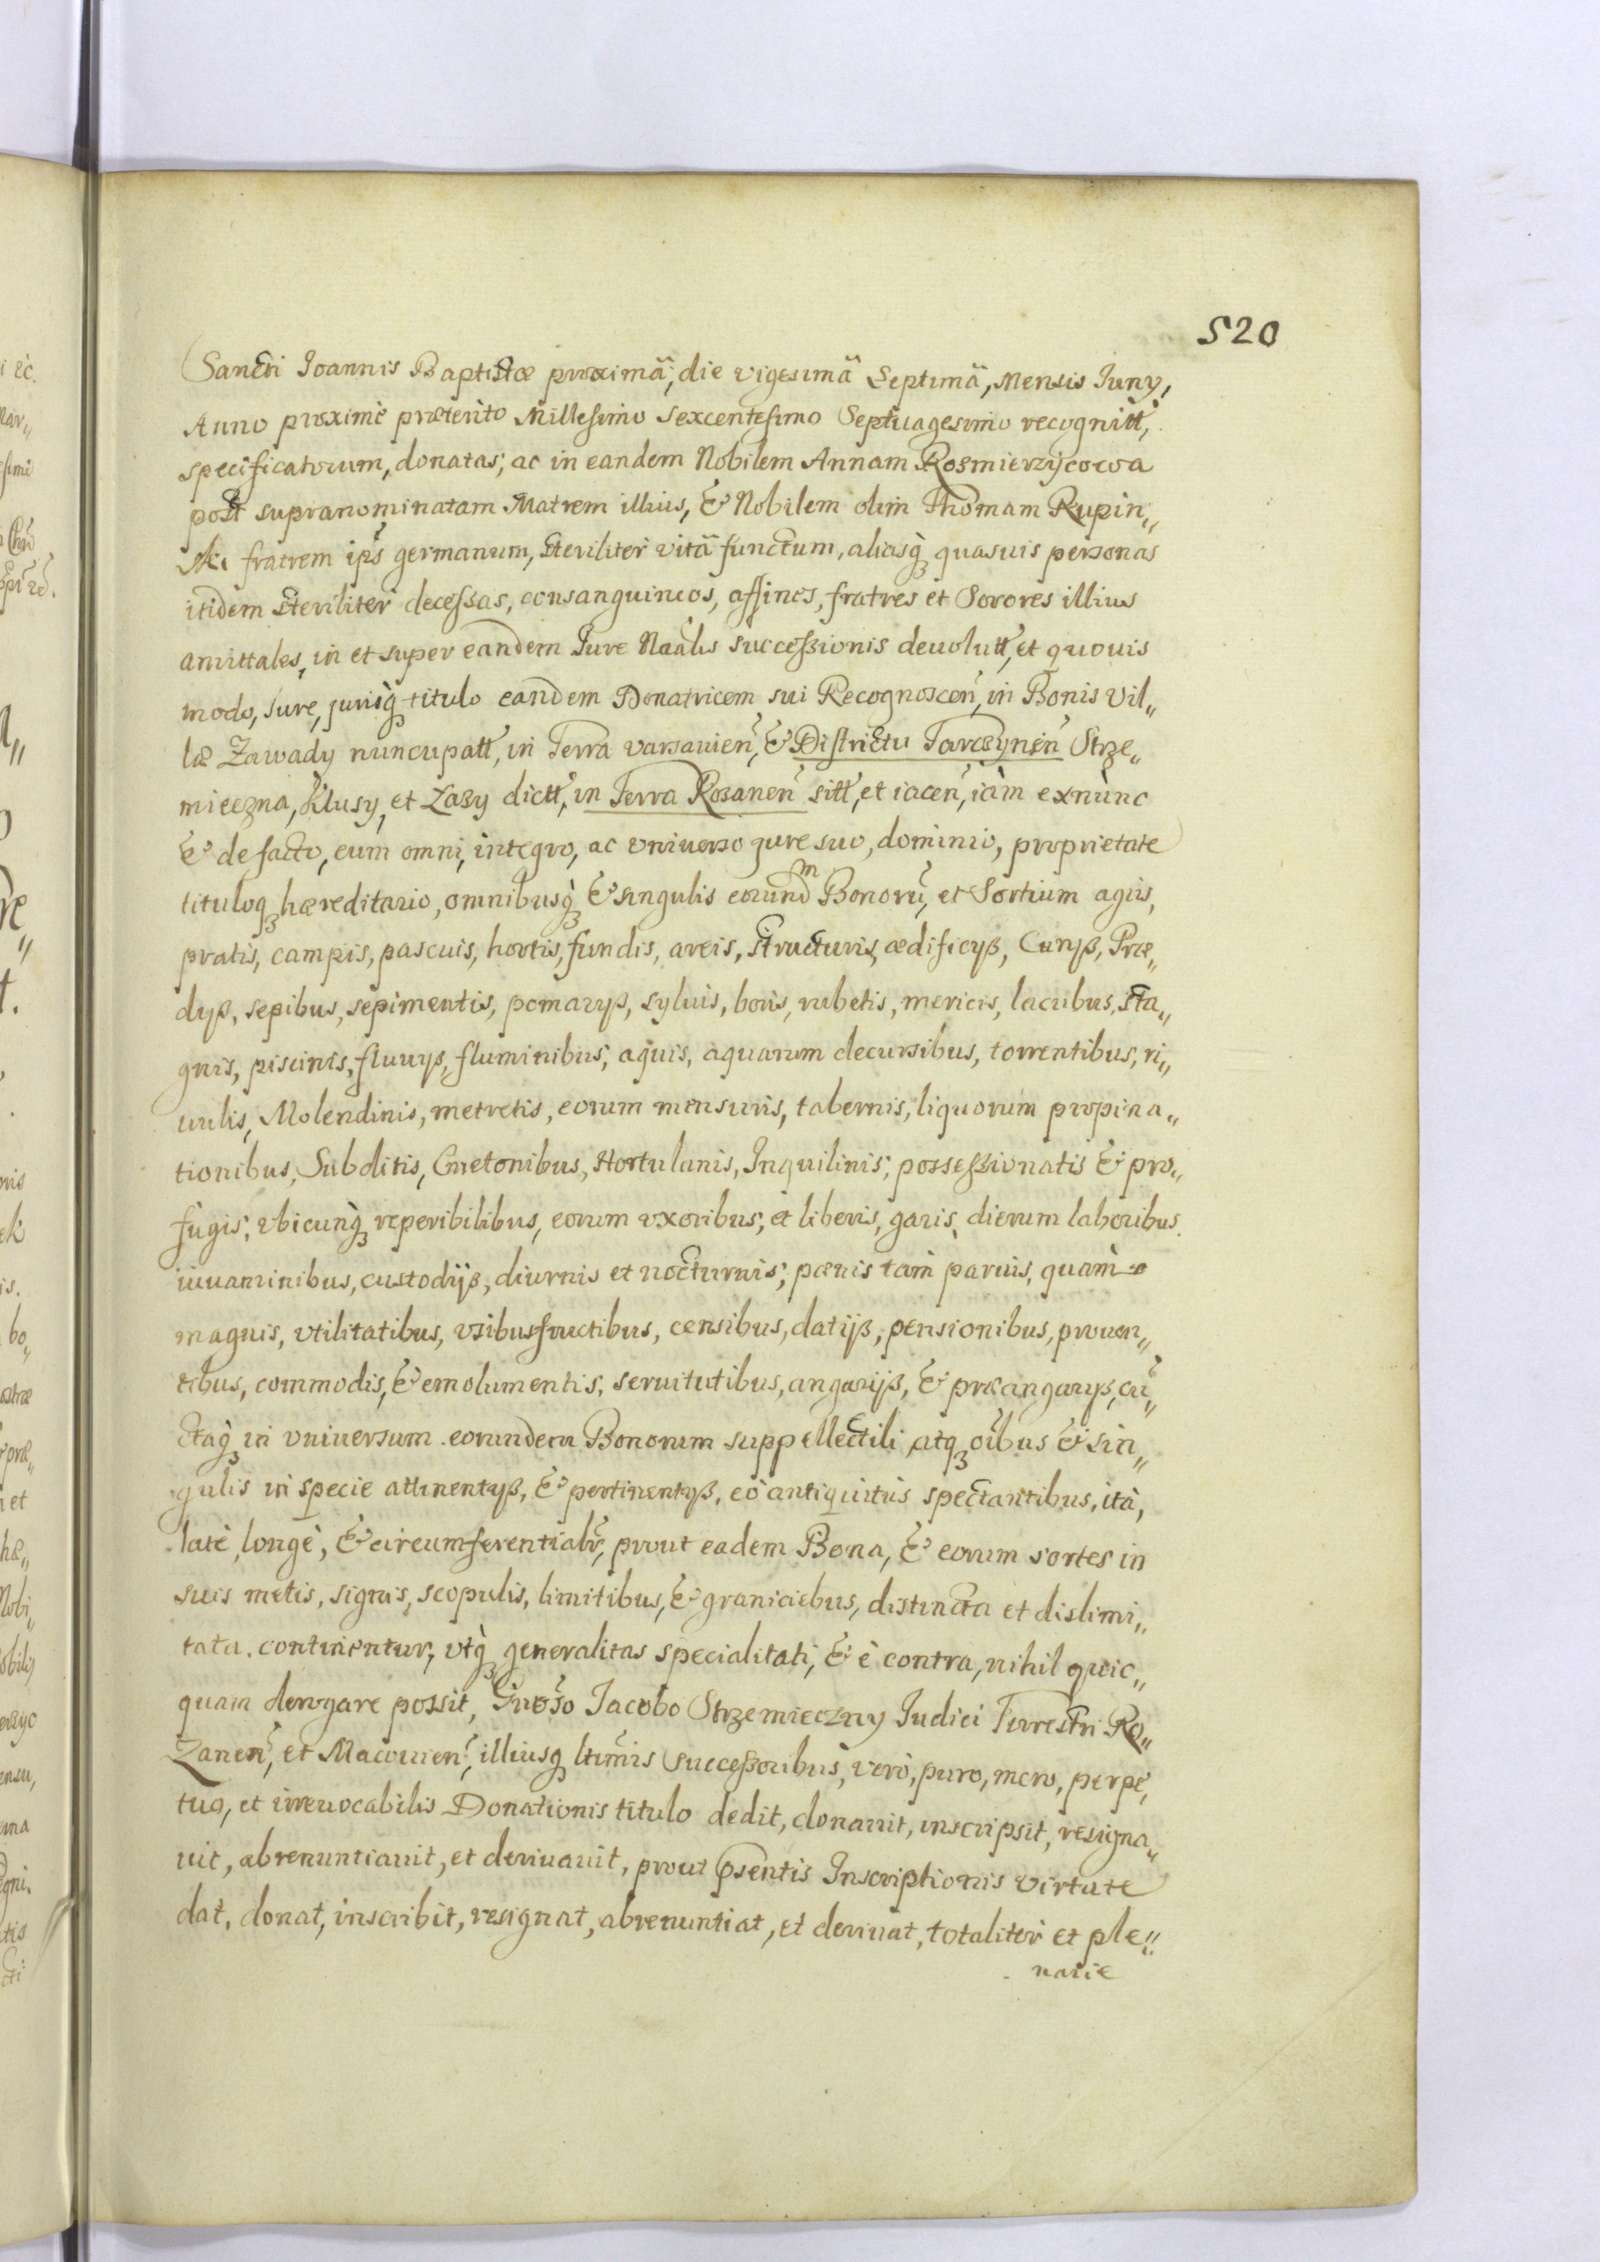 520
Sancti Joannis Baptistæ proximâ, die vigesimâ Septimâ, Mensis Juny,
Anno proximè præterito Millesimo Sexcentesimo Septuagesimo recognitt,
specificatorum, donatas, ac in eandem Nobilem Annam Rosmierzycowa
post supranominatam Matrem illius, & Nobilem olim Thomam Rupin„
ski fratrem ips germanum, steriliter vitâ functum, aliasq quasuis personas
itidem steriliter decessas, consanguineos, affines, fratres et Sorores illius
amittales, in et super eandem Jure Naalis successionis deuolutt, et quouis
modo, Jure, jurisq titulo eandem Donatricem sui Recognoscen, in Bonis Vil„
læ Zawady nuncupatt, in Terra Varsauien, & Districtu Tarczynen Strze„
mieczna, Klusy, et Zazy dictt, in Terra Rosanen sitt, et iacen, iàm exnùnc
& de facto, cum omni, integro, ac vniuerso jure suo, dominio, proprietate
tituloq hæreditario, omnibusq & singulis eorundm Bonorū, et Sortium agris,
pratis, campis, pascuis, hortis, fundis, areis, structuris, ædificyß, Curyß, Præ„
dyß, sepibus, sepimentis, pomaryß, syluis, boris, rubetis, mericis, lacubus, sta„
gnis, piscinis, fluuyß, fluminibus, aquis, aquarum decursibus, torrentibus, ri„
uulis, Molendinis, metretis, eorum mensuris, tabernis, liquorum propina„
tionibus, Subditis, Cmetonibus, Hortulanis, Inquilinis, possessionatis & pro„
fugis, vbicunq reperibilibus, eorum vxoribus, et liberis, garis, dierum laboribus
iuuaminibus, custodijß, diurnis et nocturnis, pænis tàm paruis, quàm
magnis, vtilitatibus, vsibusfructibus, censibus, datijß, pensionibus, prouen„
tibus, commodis, & emolumentis, seruitutibus, angarijß, & præangaryß, cū„
ctaq in vniuersum eorundem Bonorum suppellectili, atq oibus & sin„
gulis in specie attinentyß, & pertinentyß, eò antiquitùs spectantibus, ità,
latè, longè, & circumferentialr, prout eadem Bona, & eorum sortes in
suis metis, signis, scopulis, limitibus, & graniciebus, distincta et dislimi„
tata continentur, vtq generalitas specialitati, & è contra, nihil quic„
quam derogare possit, Gnoso Jacobo Strzemieczny Judici Terrestri Ro„
zanen, et Macouien, illiusq ltimis Successoribus, verò, puro, mero, perpe„
tuo, et irreuocabilis Donationis titulo dedit, donauit, inscripsit, resigna„
uit, abrenuntiauit, et deriuauit, prout psentis Inscriptionis virtute
dat, donat, inscribit, resignat, abrenuntiat, et deriuat, totaliter et ple„
narie